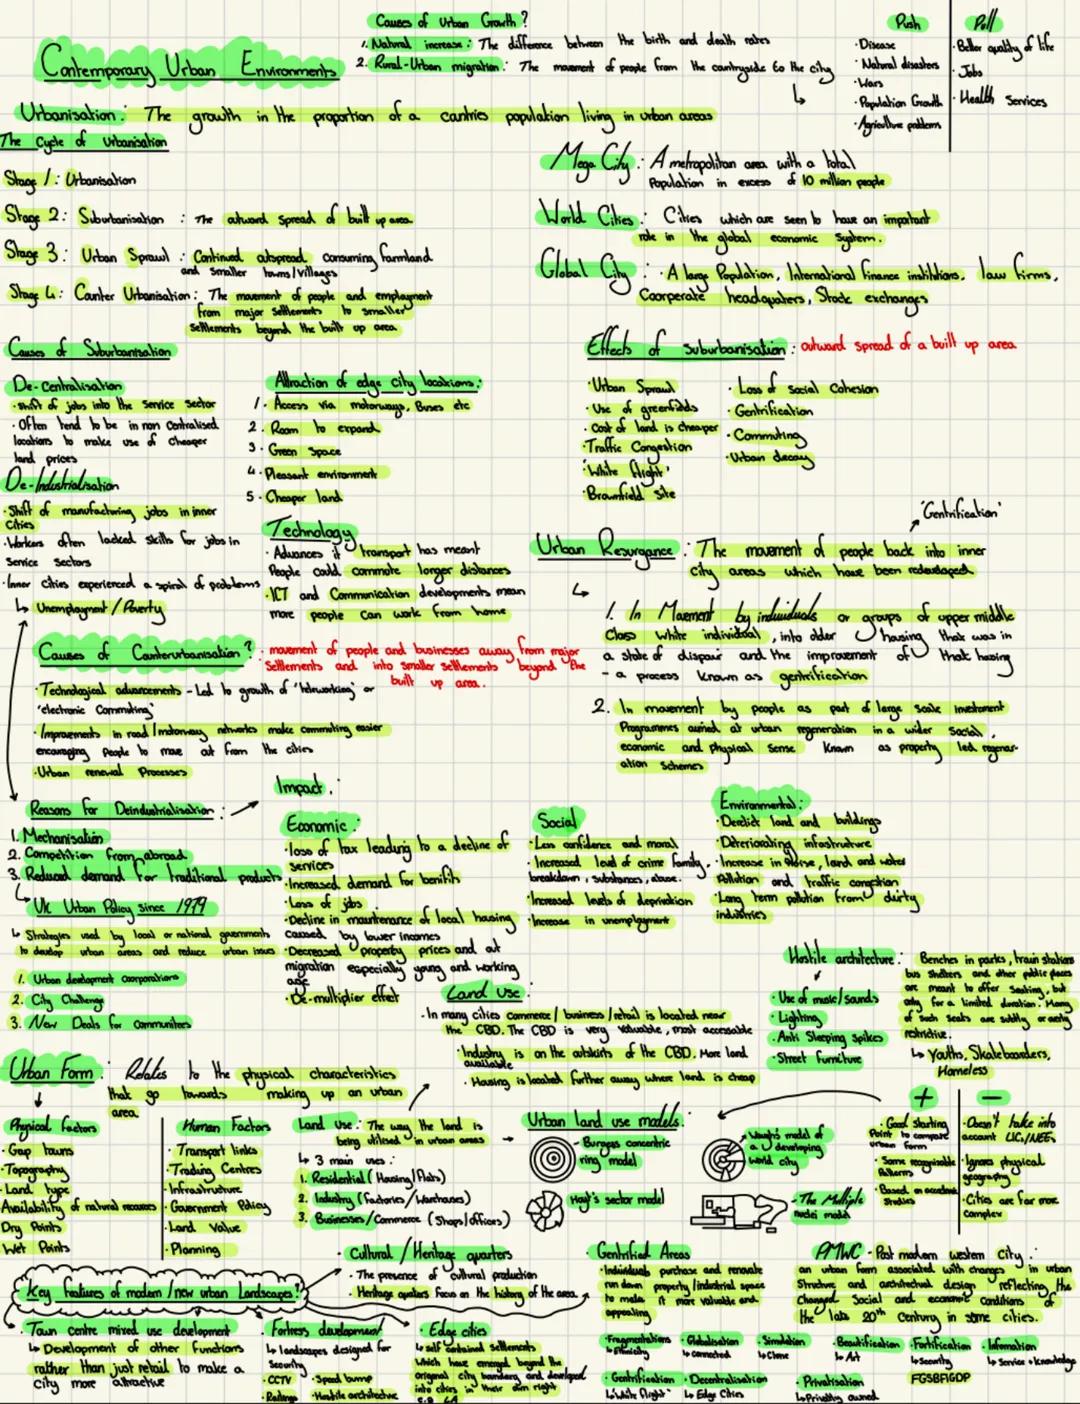 Contemporary Urban Environments
Causes of Urban Growth?
1. Natural increase: The difference between the birth and death rates
2. Rural-Urban migration: The movement of people from the countryside to the city
Push
· Disease
· Natural disasters
· Wars
· Population Growth
· Agriculture problems
Pull
· Better quality of life
· Jobs
· Health Services
Urbanisation: The growth in the proportion of a cantries population living in urban areas
The Cycle of Urbanisation
Stage 1: Urbanisation
Stage 2: Suburbanisation : The outward spread of built up area
Stage 3: Urban Sprawl : Continued outspread consuming farmland
and smaller towns/villages
Stage 4: Counter Urbanisation: The movement of people and employment
from major settlements to smaller
settlements beyond the built up area
Mega City: A metropolitan area with a total
Population in excess of 10 million people
World Cities: Cities which are seen to have an important
role in the global economic system.
Global City: A large Population, International finance institutions, law firms,
Coorperate headquaters, Stock exchanges
Causes of Suburbanisation
De-Centralisation
· Shift of jobs into the service sector
· Often tend to be in non centralised
locations to make use of cheaper
land prices
De-Industrialisation
· Shift of manufacturing jobs in inner
Cities
· Workers often lacked skills for jobs in
Service sectors
· Inner cities experienced a spiral of problems
↳ Unemployment / Poverty
Attraction of edge city locations:
1. Access via motorways, Buses etc
2. Room to expand
3. Green Space
4. Pleasent environment
5. Cheaper land
Technology
· Advances it transport has meant
People could commute longer distances
· ICT and Communication developments mean
more people can work from home
Effects of suburbanisation : outward spread of a built up area
· Urban Sprawl
· Use of greenfields
· Cost of land is cheaper
· Traffic Congestion
· 'White flight'
· Brownfield site
· Loss of Social Cohesion
· Gentrification
· Commuting
· Urban decay
'Gentrification'
Urban Resurgance : The movement of people back into inner
city areas which have been redeveloped
1. In Movement by individuals or groups of upper middle
Class white individual, into older housing that was in
a state of dispair and the improvement of that housing
- a process known as gentrification
2. In movement by people as part of large scale investment
Programmes aimed at urban regeneration in a wider social,
economic and physical sense Known as property led regener-
ation schemes
Causes of Counterurbanisation? : movement of people and businesses away from major
Settlements and into smaller settlements beyond the
built up area.
· Technological advancements - Led to growth of 'teleworking' or
'electronic Commuting'
· Improvements in road / motorway networks make commuting easier
encouraging people to move out from the cities
· Urban renewal Processes
Reasons for Deindustrialisation :
1. Mechanisation
2. Competition from abroad
3. Reduced demand for traditional products
Impact:
Economic:
· loss of tax leading to a decline of
services
· Increased demand for benifits
· Loss of jobs
· Decline in maintenance of local housing
caused by lower incomes
· Decreased property prices and out
migration especially young and working
age
· De-multiplier effect
Social
· Less confidence and moral
· Increased level of crime family,
breakdown, substances, abuse.
· Increased levels of deprivation
· Increase in unemployment
Environmental:
· Derelict land and buildings
· Deteriorating infastructure
· Increase in noise, land and water
Pollution and traffic congestion
· Long term pollution from duirty
industries
UK Urban Policy Since 1979
↳ Strategies used by local or national governments
to develop urban areas and reduce urban issues
1. Urban development coorporations
2. City Challenge
3. New Deals for Communities
Land Use:
· In many cities commerce / business / retail is located near
the CBD. The CBD is very valuable, most accessable
· Industry is on the outskirts of the CBD. More land
available
· Housing is located further away where land is cheap
Hostile architecture:
· Use of music/sounds
· Lighting
· Anti Sleeping spikes
· Street furniture
Benches in parks, train stations
bus Shelters and other public places
are meant to offer Seating, but
only for a limited duration. Many
of such seats are subtly or overtly
restrictive.
↳ Youths, Skateboarders,
Homeless
Urban Form: Relates to the physical characteristics
that go towards making up an urban
area
Physical factors
· Gap towns
· Topography
· Land type
Availability of natural resources
Dry Points
Wet Points
Human Factors
· Transport links
· Trading Centres
· Infrastructure
· Government Policy
· Land Value
· Planning
Land Use: The way the land is
being utilised in urban areas
↳ 3 main uses:
1. Residential (Housing/Flats)
2. Industry (Factories / Warehouses)
3. Businesses/Commerce (Shops/offices)
Urban land use models:
- Burgess concentric
ring model
Hoyt's sector model
Waugh's model of
a developing
world city
- The Multiple
nuclei model
+
· Good starting
Point to compare
urban form
· Some recognisable
Patterns
· Based on accedemic
Studies
-
· Doesn't take into
account LIC/NEEs
· Ignores physical
geography
· Cities are far more
complex
Key features of modern/new urban landscapes?
· Cultural / Heritage quarters
· The presence of cultural production
· Heritage quaters focus on the history of the area
· Gentrified Areas
· Individuals purchase and renovate
run down property/industrial space
to make it more valuable and
appealing
PMWC - Post modern western City:
an urban form associated with changes in urban
Structure and architectual design reflecting the
changed Social and economic conditions of
the late 20th Century in some cities.
· Town centre mixed use development
↳ Development of other functions
rather than just retail to make a
City more attractive
· Fortress development
↳ landscapes designed for
Security
· CCTV · Speed bump
· Railings · Hostile architective
· Edge cities
↳ self contained settlements
which have emerged beyond the
original city boundary and developed
into cities in their own right
e.g. LA
· Fragmentations · Globalisation · Simulation · Beautification · Fortification · Information
↳ Ethnicity ↳ connected ↳ Clone ↳ Art ↳ Security ↳ Service + knowledge
· Gentrification · Decentralisation · Privatisation FGSBFIGDP
↳ 'White flight' ↳ Edge Cities ↳ Privately owned